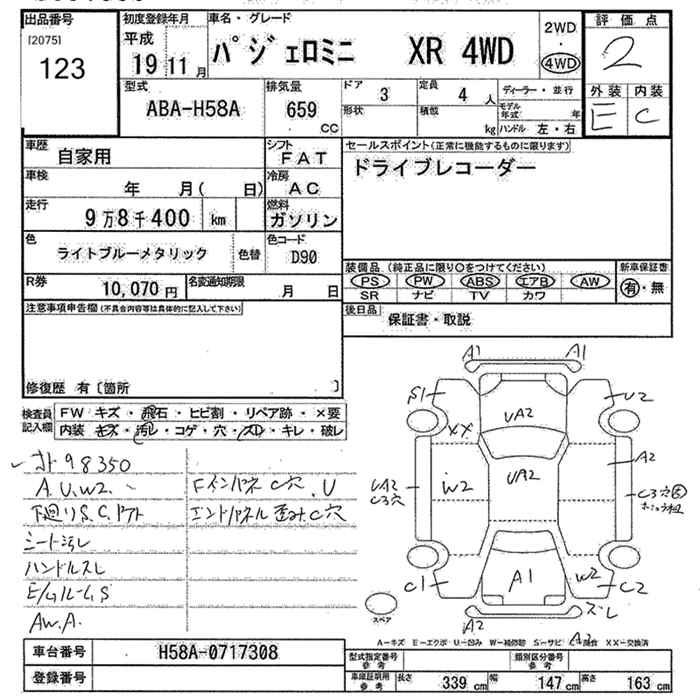 出品番号
[2075]
123
初度登録年月
平成
19 11 月
車名・グレード
パジェロミニ XR 4WD
2WD
・
4WD
評価点
2
外装 内装
E C
型式
ABA-H58A
排気量
659
cc
ドア 3
形状
定員 4 人
積載 kg
ディーラー・並行
モデル年式 年
ハンドル 左・右
車歴
自家用
シフト
FAT
車検
年 月( 日)
冷房
AC
走行
9万8千400 km
燃料
ガソリン
色
ライトブルーメタリック
色替
色コード
D90
R券
10,070 円
名変通知期限
月 日
セールスポイント(正常に機能するものに限ります)
ドライブレコーダー
装備品(純正品に限り○をつけてください)
PS PW ABS エアB AW
SR ナビ TV カワ
新車保証書
有・無
後日品
保証書・取説
注意事項申告欄(不具合内容等は具体的に記入して下さい)
修復歴 有〔箇所 〕
検査員
記入欄
FW キズ・飛石・ヒビ割・リペア跡・×要
内装 キズ・汚レ・コゲ・穴・スレ・キレ・破レ
98350
A.U.W2.
下廻りS.C.
シート汚レ
ハンドルスレ
E/GルームS
AW.A.
Fインパネ C穴.U
エンドパネル 歪み.C穴
A1 A1
S1
U2
UA2
XX
A2
W2
UA2
UA2
C3穴
C3穴
A1
W2
C1
C2
スレ
A2
A2
スペア
A-キズ E-エクボ U-凹み W-補修跡 S-サビ C-腐食 XX-交換済
車台番号
H58A-0717308
登録番号
型式指定番号
参考
類別区分番号
参考
車庫証明用
参考
長さ 339 cm
幅 147 cm
高さ 163 cm